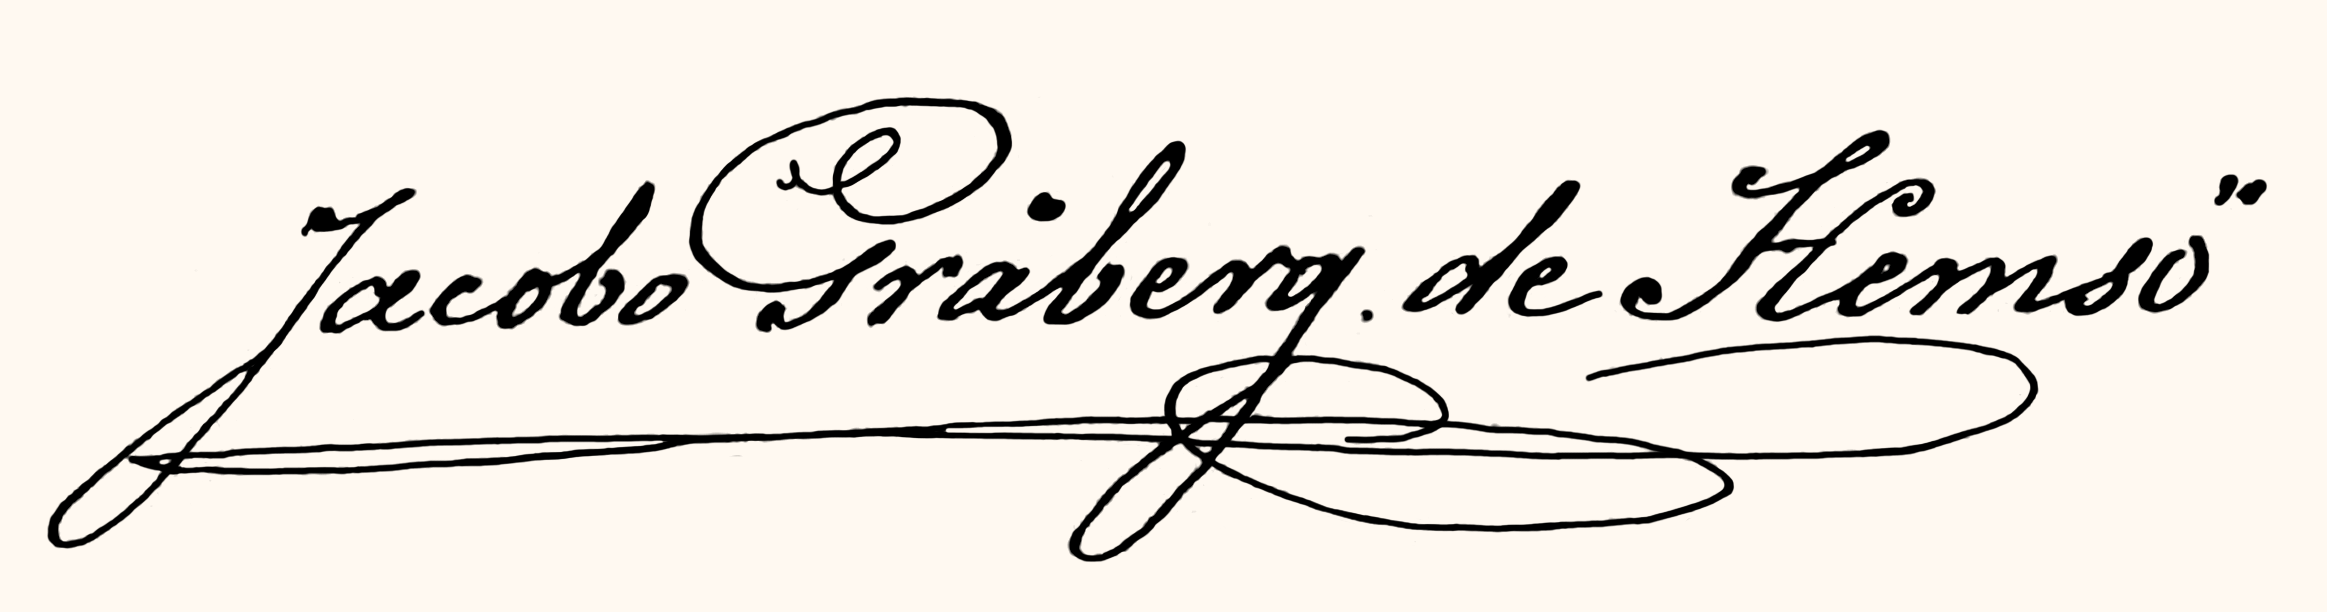 Jacobo Gråberg. de Hemsö